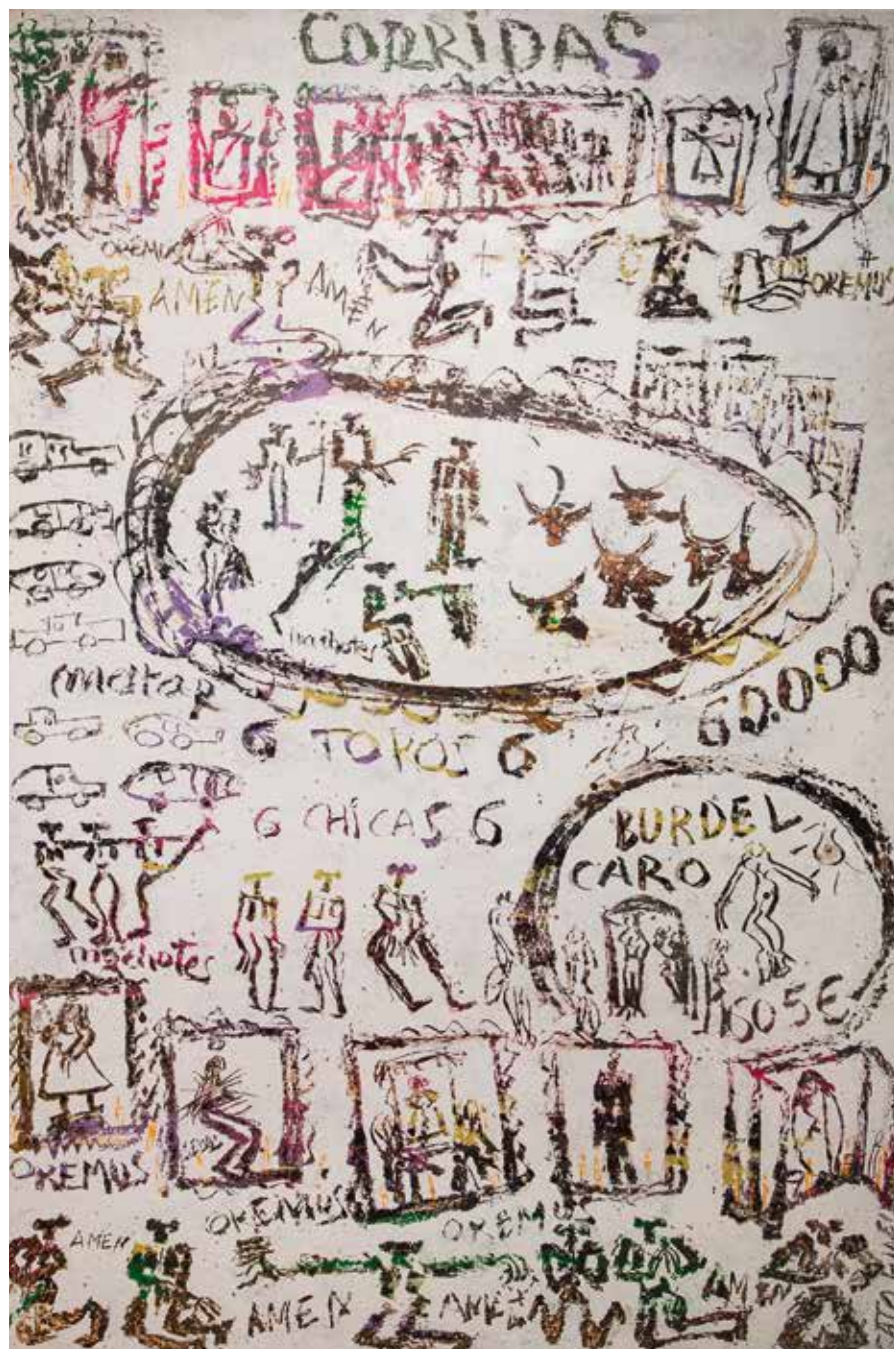 CORRIDAS
OREMUS
AMEN
AMEN
OREMUS
machotes
matar
6 TOROS 6
60.000€
6 CHICAS 6
BURDEL
CARO
machotes
605€
OREMUS
OREMUS
OREMUS
AMEN
AMEN
AMEN
AMEN